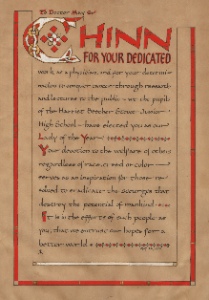 To Doctor May C
CHINN
FOR YOUR DEDICATED
work as a physician, and for your determin-
ation to conquer cancer through research
and lectures to the public - we the pupils
of the Harriet Beecher Stowe Junior
High School - have elected you as our
Lady of the Year
Your devotion to the welfare of others
regardless of race, creed or color
serves as an inspiration for those
to eradicate the scourges that
destroy the potential of mankind
It is the efforts of such people as
you, that our hopes for a
better world